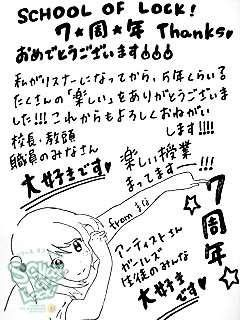 SCHOOL OF LOCK!
7★周★年 Thanks♥
おめでとうございます
私がリスナーになってから、5年くらいる
たくさんの「楽しい」をありがとうございま
した!!! これからもよろしくおねがい
します!!!!
校長、教頭
職員のみなさん
大好きです♥
楽しい授業
まってますー!!!
from まな
アーティストさん
ガールズ
生徒のみんな
大好き
です♥
☆7周年☆
SCHOOL OF LOCK!